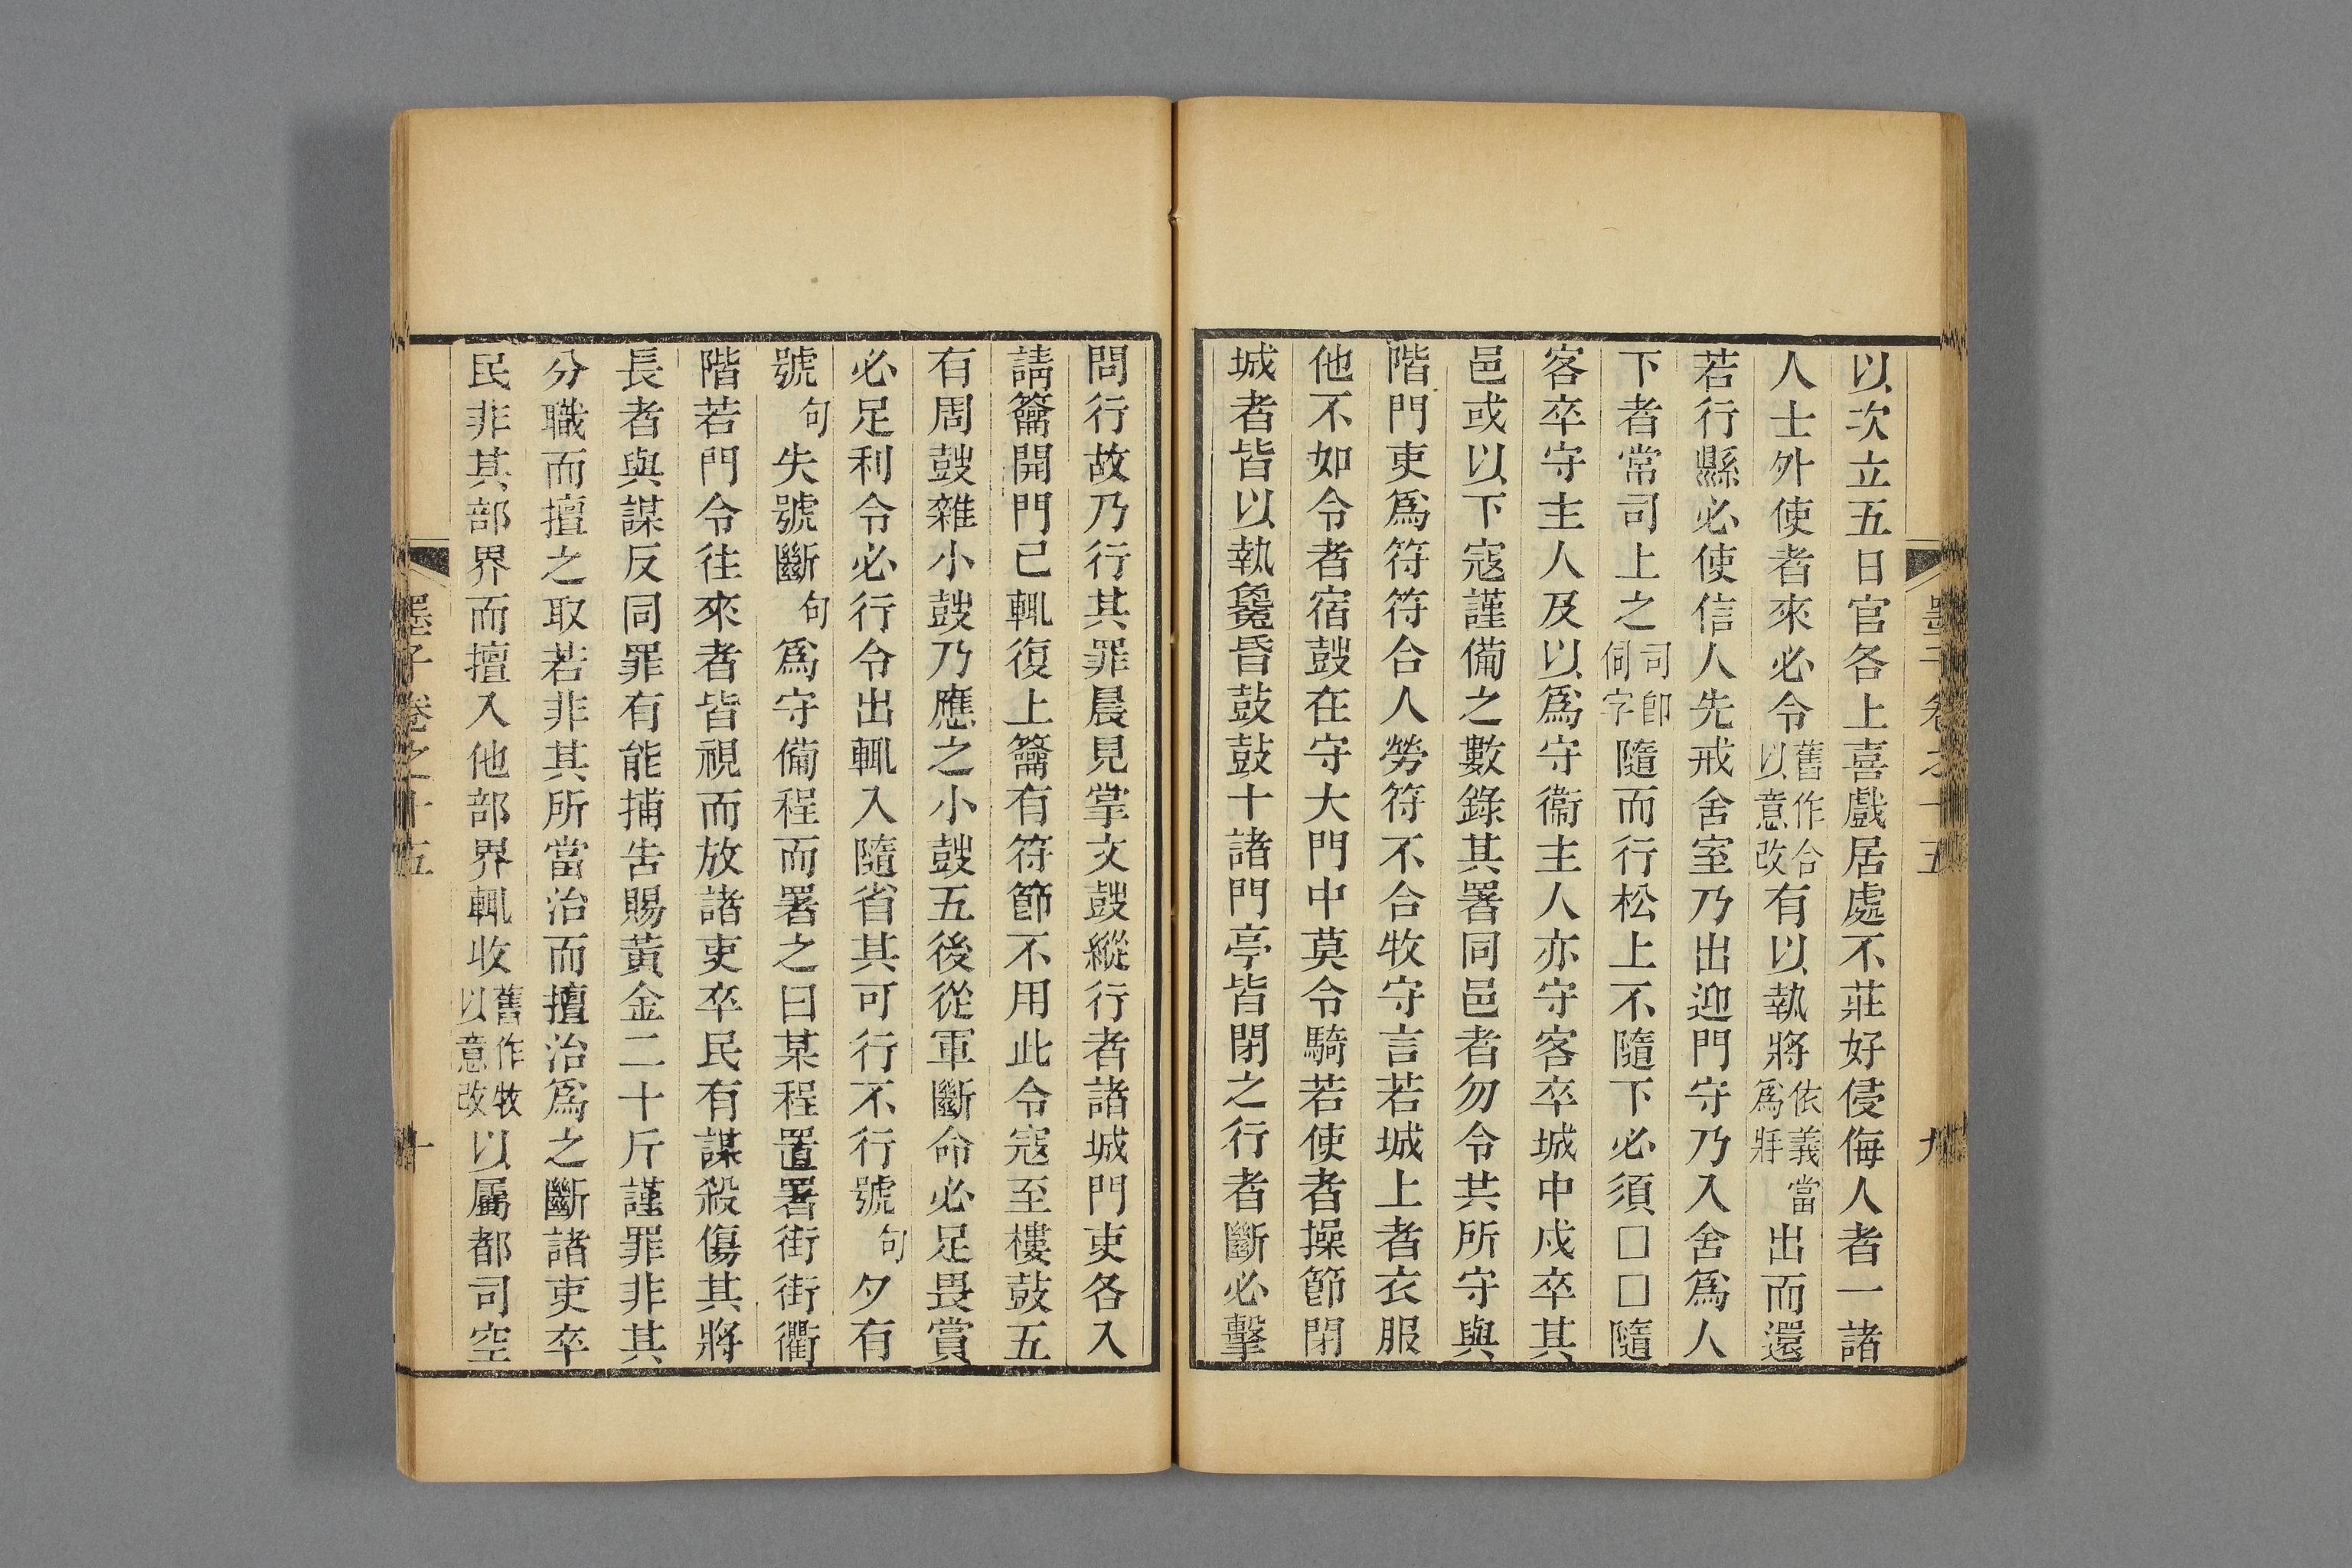 以次立五日官各上喜戲居處不莊好侵侮人者一諸
人士外使者來必令舊作合以意改有以執將依義當爲將出而還
若行縣必使信人先戒舍室乃出迎門守乃入舍爲人
下者常司上之司即伺字隨而行松上不隨下必須□□隨
客卒守主人及以爲守衞主人亦守客卒城中戍卒其
邑或以下寇謹備之數錄其署同邑者勿令共所守與
階門吏爲符符合人勞符不合牧守言若城上者衣服
他不如令者宿鼓在守大門中莫令騎若使者操節閉
城者皆以執毚昏鼓鼓十諸門亭皆閉之行者斷必擊
墨子卷之十五 九
問行故乃行其罪晨見掌文鼓縱行者諸城門吏各入
請籥開門己輒復上籥有符節不用此令寇至樓鼓五
有周鼓雜小鼓乃應之小鼓五後從軍斷命必足畏賞
必足利令必行令出輒入隨省其可行不行號句夕有
號句失號斷句爲守備程而署之曰某程置署街街衢
階若門令往來者皆視而放諸吏卒民有謀殺傷其將
長者與謀反同罪有能捕告賜黃金二十斤謹罪非其
分職而擅之取若非其所當治而擅治爲之斷諸吏卒
民非其部界而擅入他部界輒收舊作牧以意改以屬都司空
墨子卷之十五 十